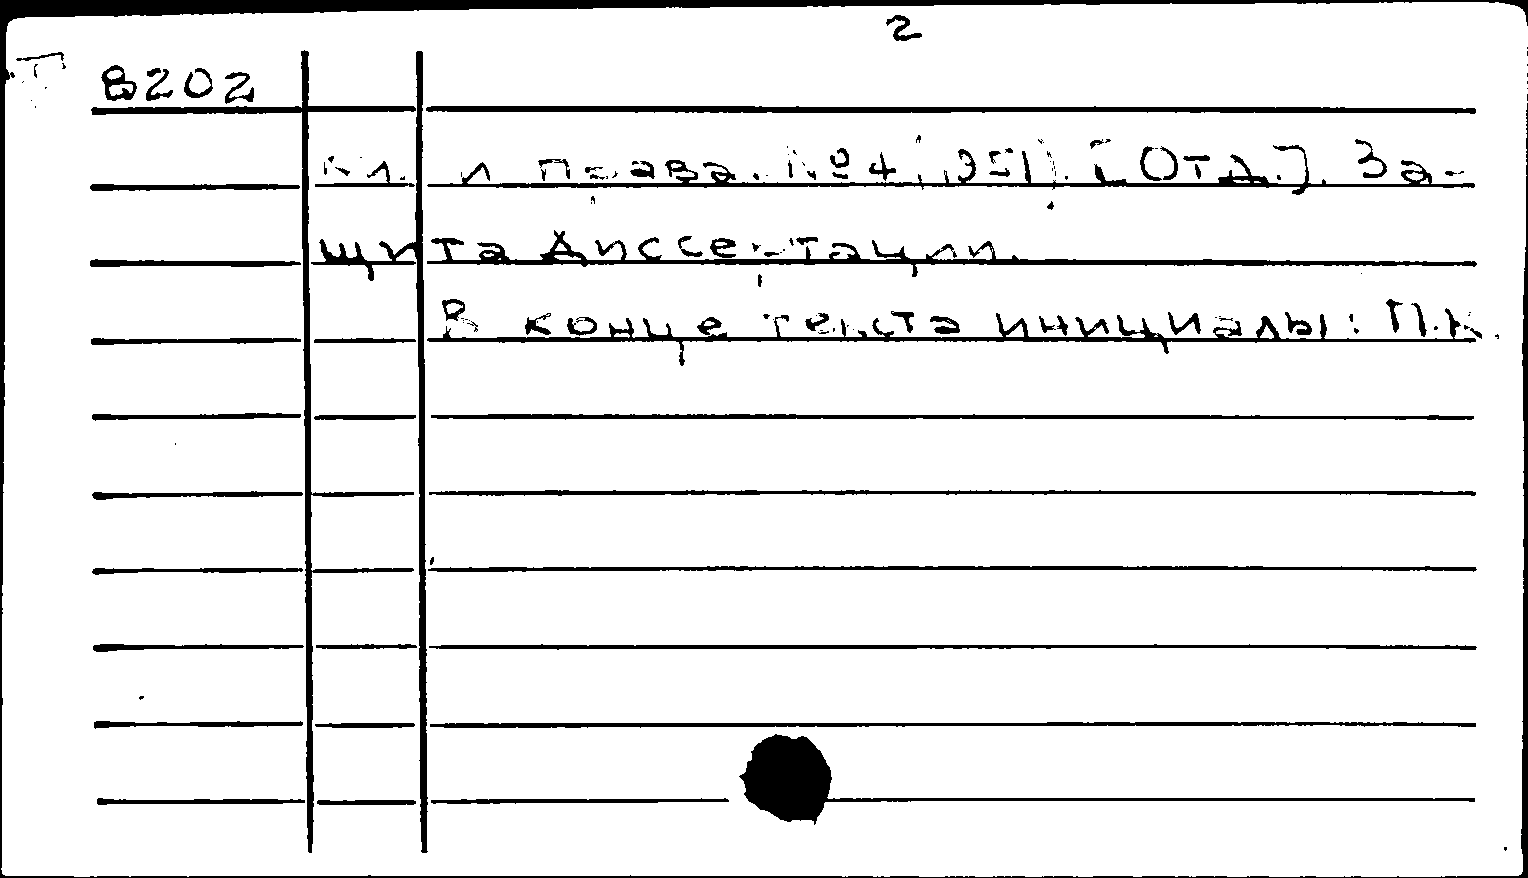 2
8202
и права. № 4 (1951). [Отд.]. За-
щита диссертации.
В конце текста инициалы: П.К.